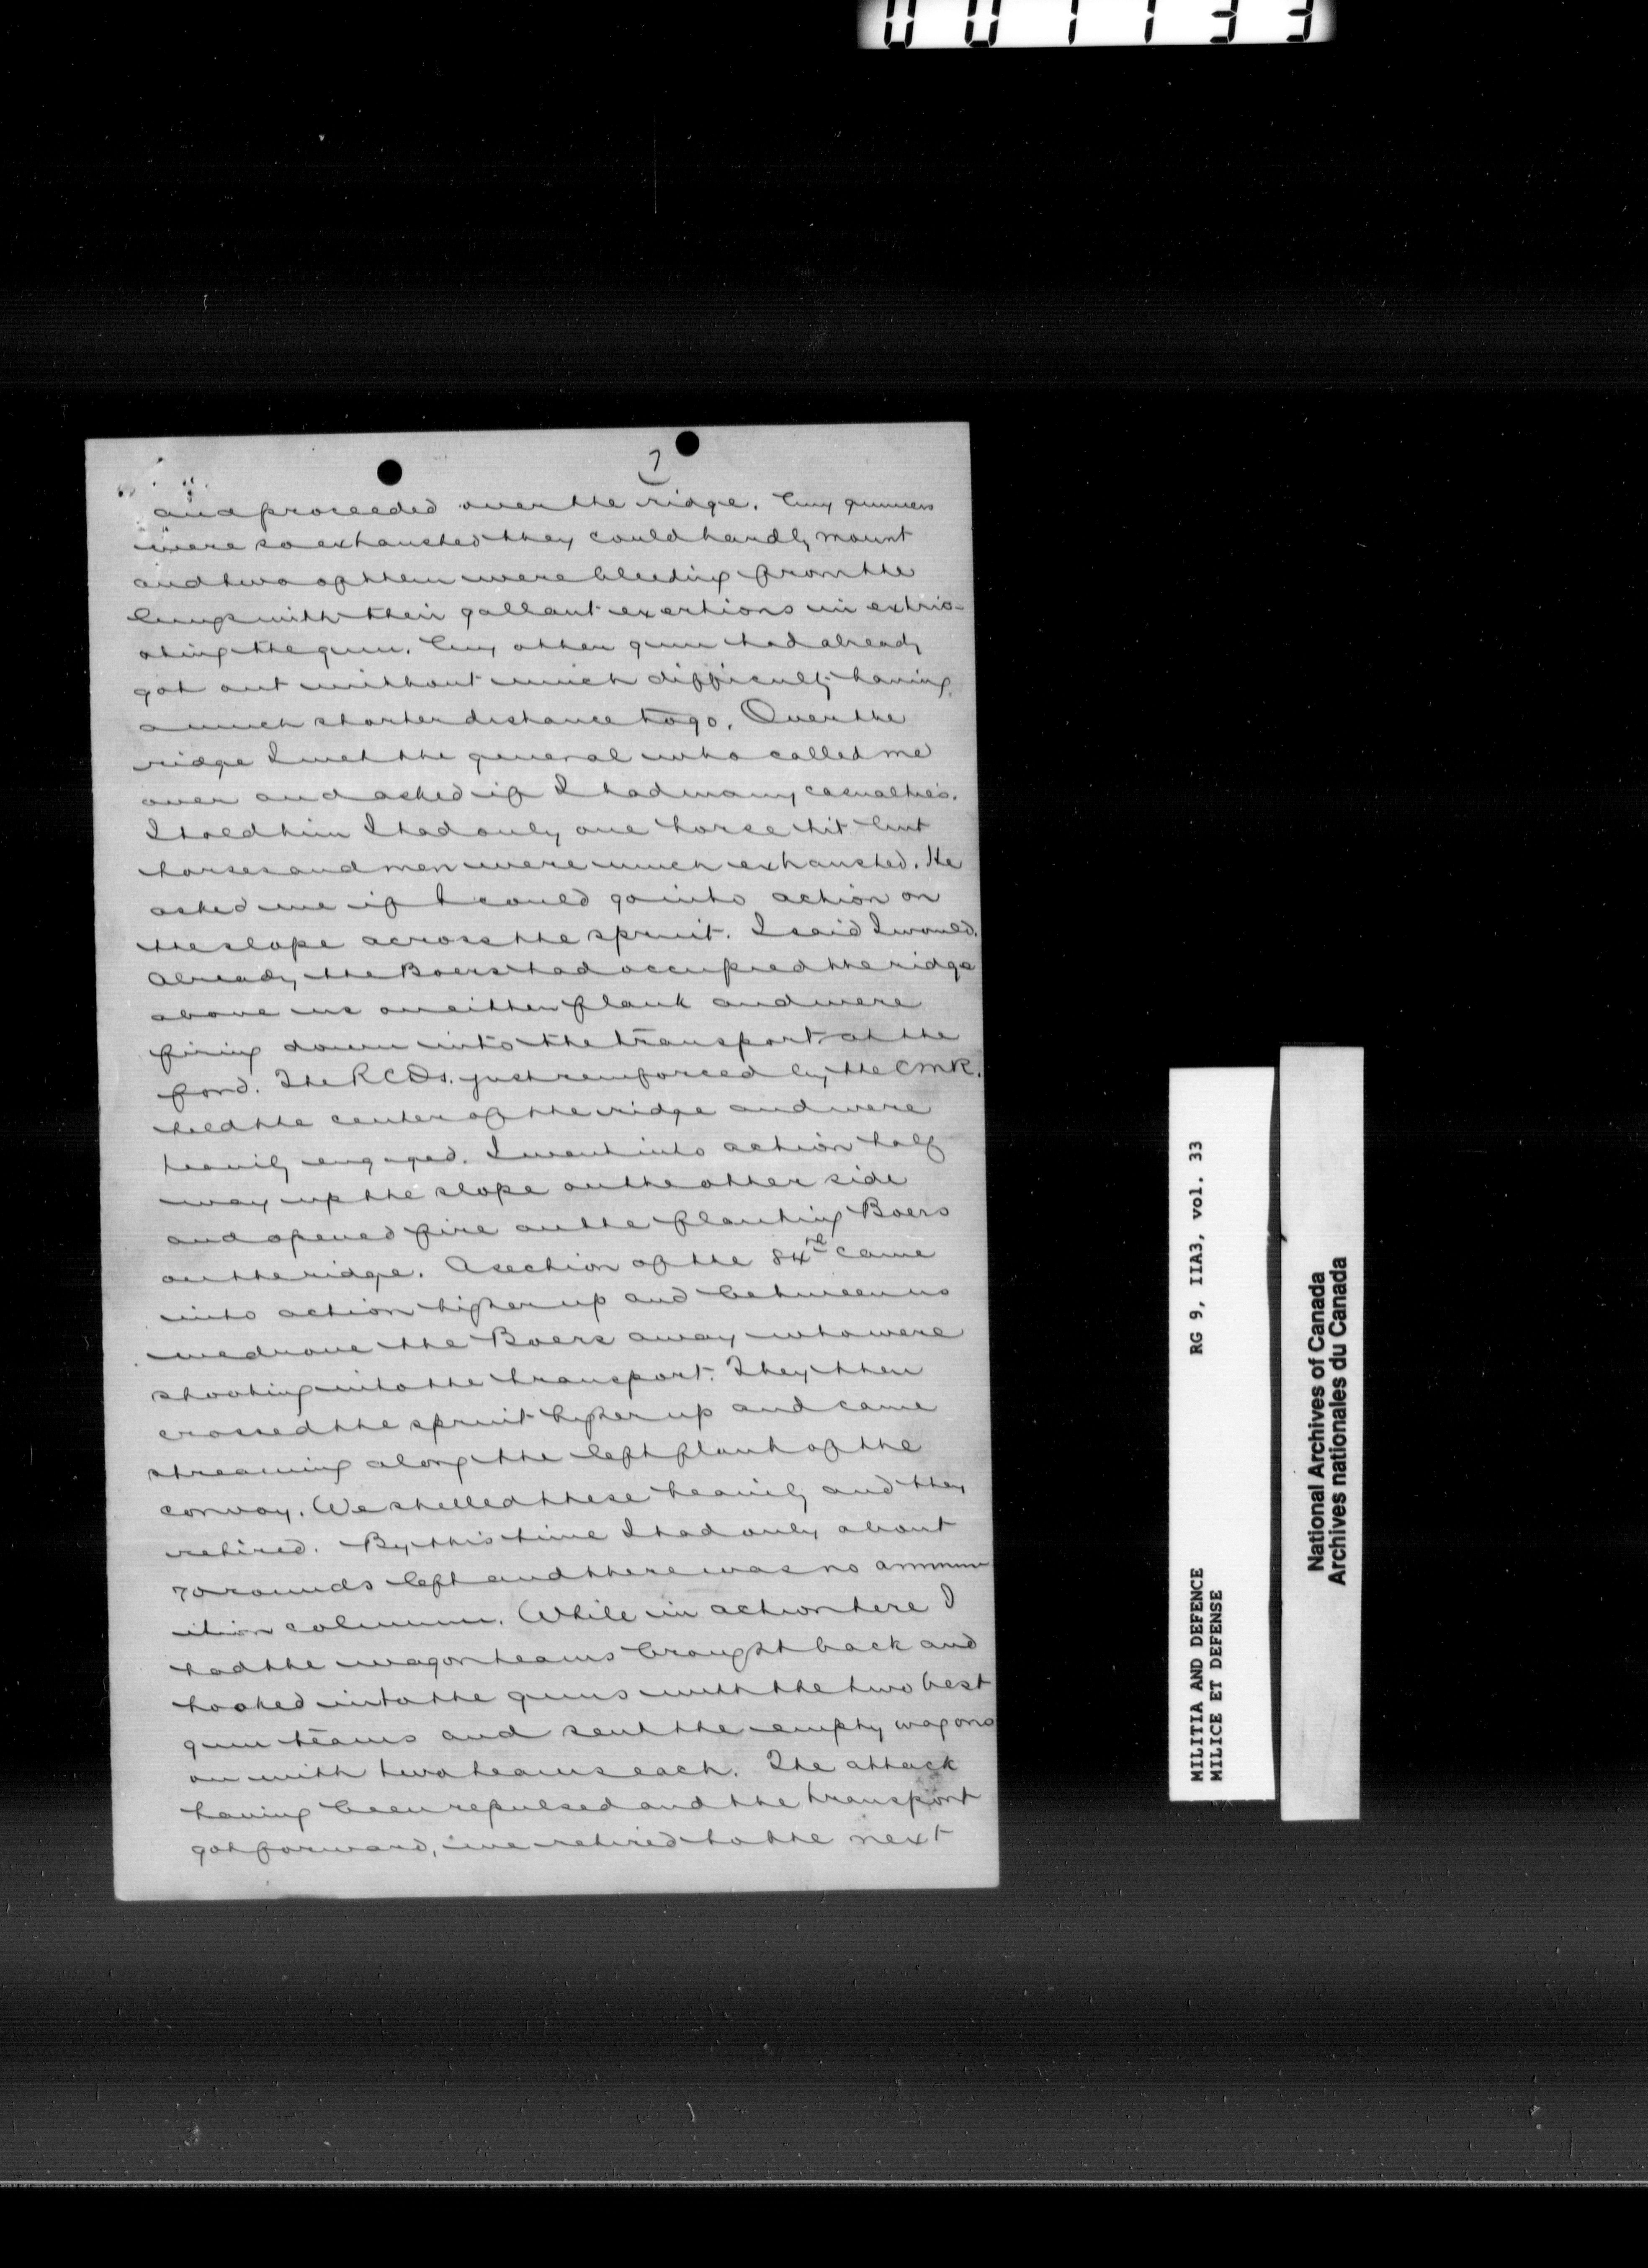 001133
7
and proceeded over the ridge. My gunners
were so exhausted they could hardly mount
and two of them were bleeding from the
lungs with their gallant exertions in extric-
ating the gun. My other gun had already
got out without much difficulty having
a much shorter distance to go. Over the
ridge I met the general who called me
over and asked if I had many casualties.
I told him I had only one horse hit but
horses and men were much exhausted. He
asked me if I could go into action on
the slope across the spruit. I said I would.
Already the Boers had occupied the ridge
above us on either flank and were
firing down into the transport at the
ford. The RCDs. just reinforced by the CMR.
held the center of the ridge and were
heavily engaged. I went into action half
way up the slope on the other side
and opened fire on the flanking Boers
on the ridge. A section of the 84th came
into action higher up and between us
we drove the Boers away who were
shooting into the transport. They then
crossed the spruit higher up and came
streaming along the left flank of the
convoy. We shelled these heavily and they
retired. By this time I had only about
70 rounds left and there was no ammun
ition column. While in action here I
had the wagon teams brought back and
hooked into the guns with the two best
gun teams and sent the empty wagons
on with two teams each. The attack
having been repulsed and the transport
got forward, we retired to the next
MILITIA AND DEFENCE RG 9, IIA3, vol. 33
MILICE ET DEFENSE
National Archives of Canada
Archives nationales du Canada